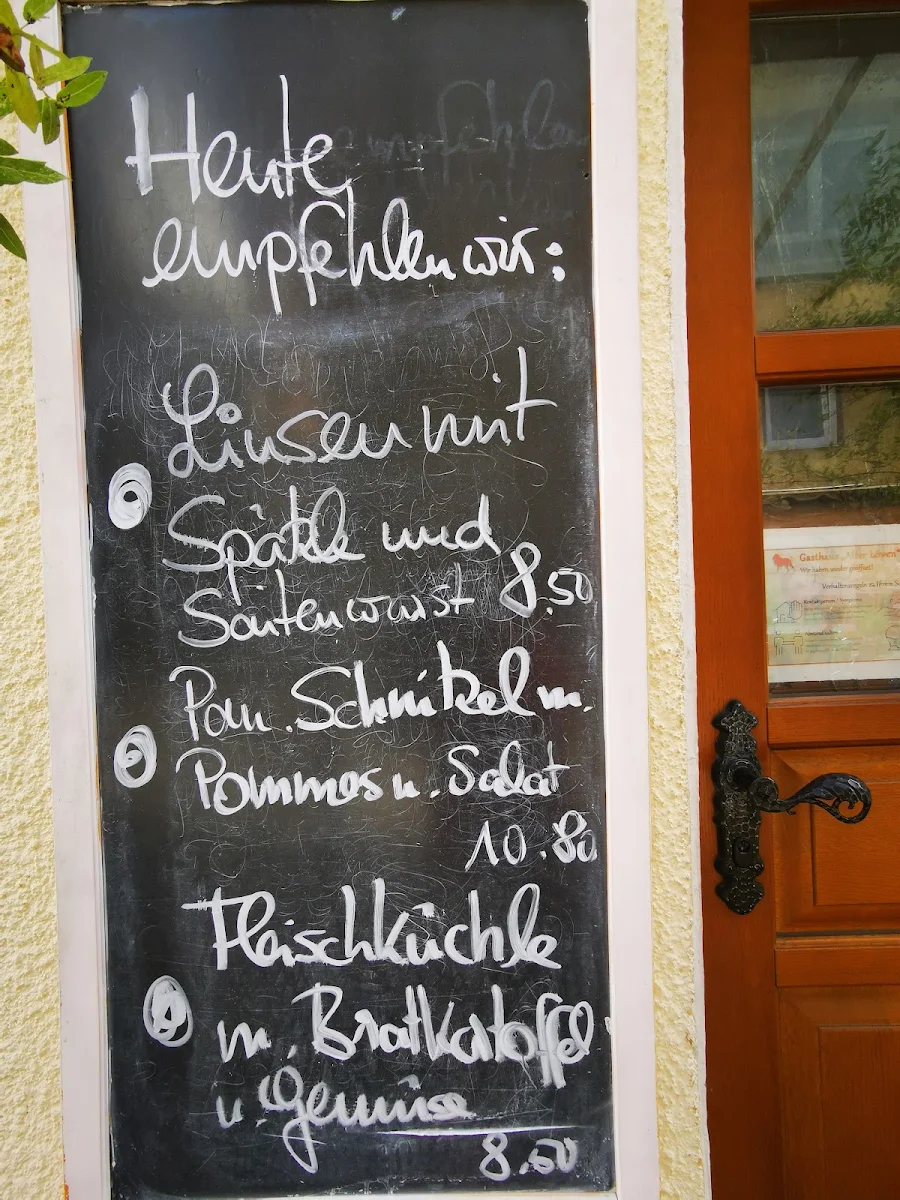 Heute
empfehlen wir:
Linsen mit
Spätzle und
Saitenwurst 8.50
Pan. Schnitzel m.
Pommes u. Salat
10.80
Fleischküchle
m. Bratkartoffel
u. Gemüse
8.50
Gasthaus „Alter Löwen“
Wir haben wieder geöffnet!